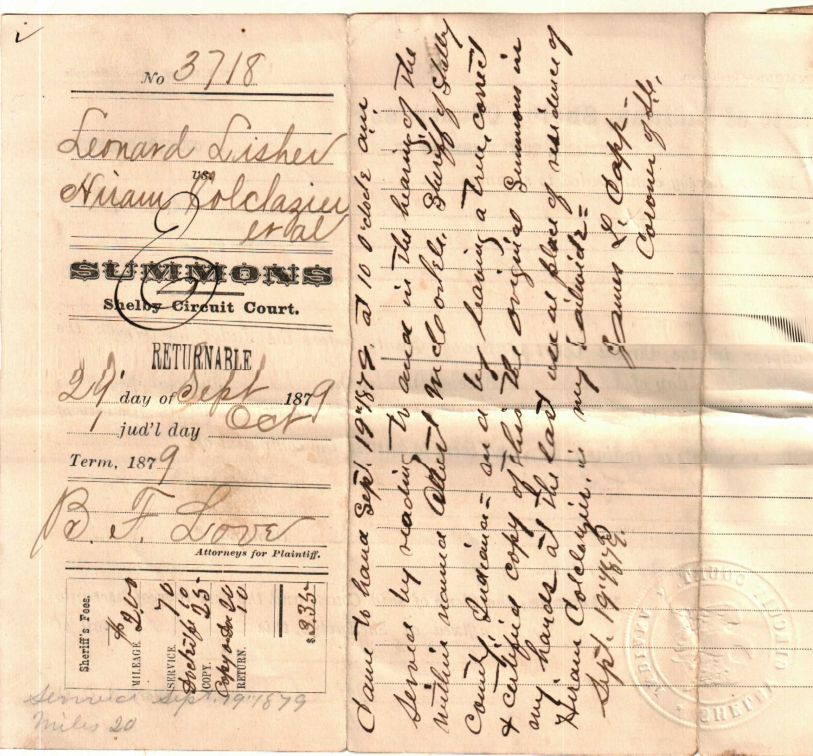 No 3718
Leonard Lisher
vs.
Hiram Colclazier
et al
SUMMONS
Shelby Circuit Court.
RETURNABLE
29 day of Sept 1879
1 jud'l day Oct
Term, 1879
B. F. Love
Attorneys for Plaintiff.
Sheriff's Fees.
$
MILEAGE. 2 00
SERVICE. 70
Docket 10
COPY. 25
Copy 20
RETURN. 10
$ 3.35
Service Sept. 19" 1879
Miles 20
Came to hand Sept. 19" 1879. at 10 o'clock a.m.
Served by reading to and in the hearing of the
within named Albert McCorkle Sheriff of Shelby
County Indiana = and by leaving a true, correct
& certified copy of this the original Summons in
my hands at the last usual place of residence of
Hiram Colclazier, in my Bailiwick =
Sept. 19" 1879.
James L. Capp -
Coroner of S.C.
CIRCUIT COURT